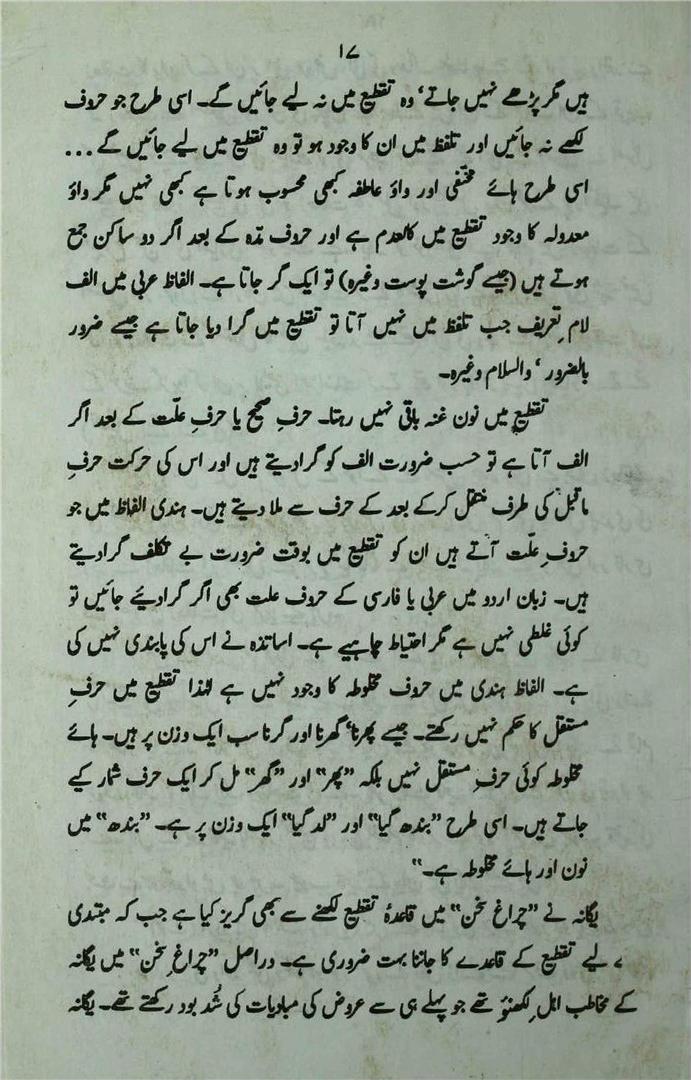 ۱۷
ہیں مگر پڑھے نہیں جاتے‘ وہ تقطیع میں نہ لیے جائیں گے۔ اسی طرح جو حروف
لکھے نہ جائیں اور تلفظ میں ان کا وجود ہو تو وہ تقطیع میں لیے جائیں گے ...
اسی طرح ہائے مختفی اور واؤ عاطفہ کبھی محسوب ہوتا ہے کبھی نہیں مگر واؤ
معدولہ کا وجود تقطیع میں کالعدم ہے اور حروف مدّہ کے بعد اگر دو ساکن جمع
ہوتے ہیں (جیسے گوشت پوست وغیرہ) تو ایک گر جاتا ہے۔ الفاظ عربی میں الف
لام تعریف جب تلفظ میں نہیں آتا تو تقطیع میں گرا دیا جاتا ہے جیسے ضرور
بالضرور‘ والسلام وغیرہ۔
تقطیع میں نون غنہ باقی نہیں رہتا۔ حرفِ صحیح یا حرفِ علّت کے بعد اگر
الف آتا ہے تو حسب ضرورت الف کو گرا دیتے ہیں اور اس کی حرکت حرفِ
ماقبل کی طرف منتقل کرکے بعد کے حرف سے ملا دیتے ہیں۔ ہندی الفاظ میں جو
حروفِ علّت آتے ہیں ان کو تقطیع میں بوقت ضرورت بے تکلف گرا دیتے
ہیں۔ زبان اردو میں عربی یا فارسی کے حروف علت بھی اگر گرا دیئے جائیں تو
کوئی غلطی نہیں ہے مگر احتیاط چاہیے ہے۔ اساتذہ نے اس کی پابندی نہیں کی
ہے۔ الفاظ ہندی میں حروف مخلوطہ کا وجود نہیں ہے لہٰذا تقطیع میں حرفِ
مستقل کا حکم نہیں رکھتے۔ جیسے پھرنا‘ گھرنا اور گرنا سب ایک وزن پر ہیں۔ ہائے
مخلوطہ کوئی حرفِ مستقل نہیں بلکہ ”پھر“ اور ”گھر“ مل کر ایک حرف شمار کیے
جاتے ہیں۔ اسی طرح ”بندھ گیا“ اور ”لد گیا“ ایک وزن پر ہے۔ ”بندھ“ میں
نون اور ہائے مخلوطہ ہے۔“
یگانہ نے ”چراغ سخن“ میں قاعدۂ تقطیع لکھنے سے بھی گریز کیا ہے جب کہ مبتدی
لیے تقطیع کے قاعدے کا جاننا بہت ضروری ہے۔ دراصل ”چراغِ سخن“ میں یگانہ
کے مخاطب اہلِ لکھنؤ تھے جو پہلے ہی سے عروض کی مبادیات کی شُد بود رکھتے تھے۔ یگانہ